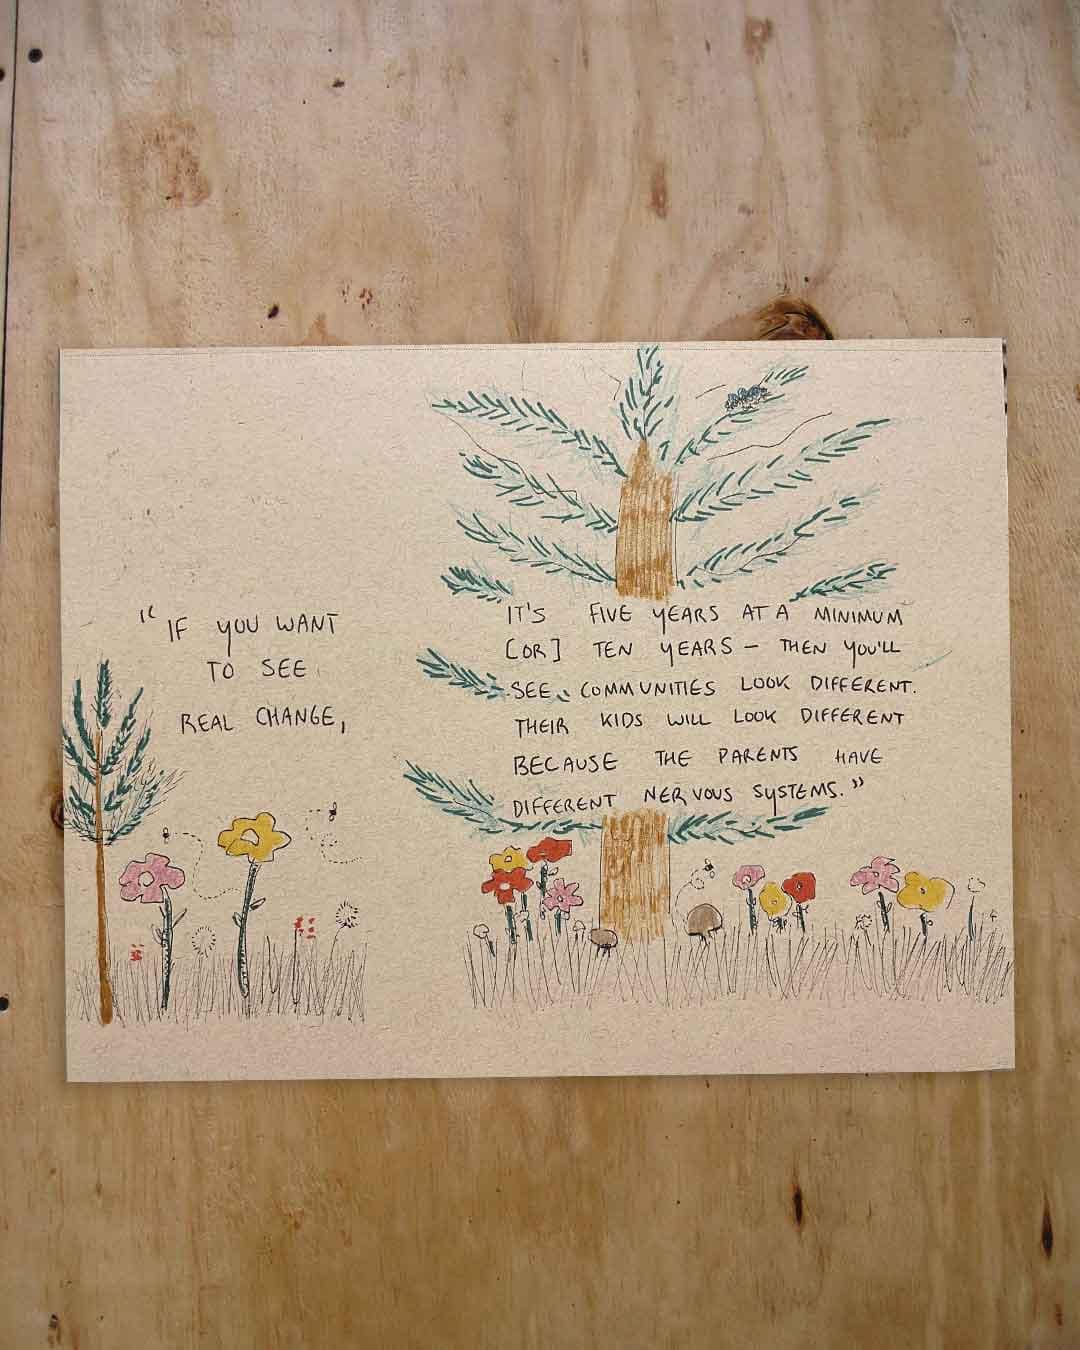 "IF YOU WANT
TO SEE
REAL CHANGE,
IT'S FIVE YEARS AT A MINIMUM
[OR] TEN YEARS – THEN YOU'LL
SEE COMMUNITIES LOOK DIFFERENT.
THEIR KIDS WILL LOOK DIFFERENT
BECAUSE THE PARENTS HAVE
DIFFERENT NERVOUS SYSTEMS."